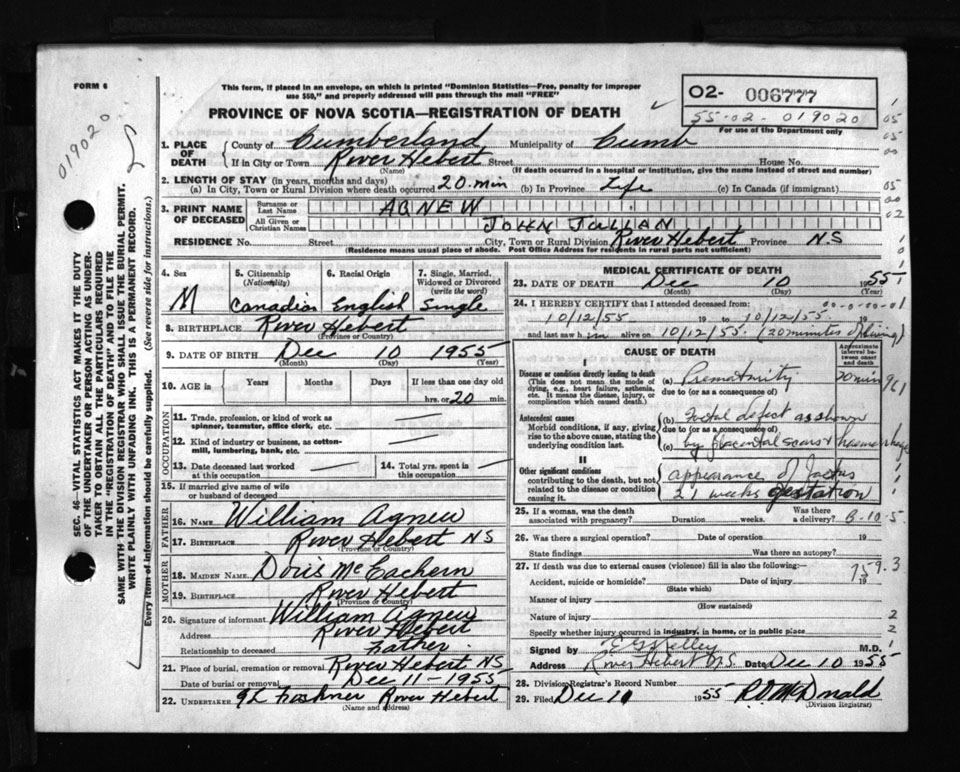 FORM 6
This form, if placed in an envelope, on which is printed "Dominion Statistics—Free, penalty for improper
use $50," and properly addressed will pass through the mail "FREE"
PROVINCE OF NOVA SCOTIA—REGISTRATION OF DEATH
02- 006777
55-02-019020
For use of the Department only
019020
SEC. 46—VITAL STATISTICS ACT MAKES IT THE DUTY
OF THE UNDERTAKER OR PERSON ACTING AS UNDER-
TAKER TO OBTAIN ALL THE PARTICULARS REQUIRED
IN THE "REGISTRATION OF DEATH" AND TO FILE THE
SAME WITH THE DIVISION REGISTRAR WHO SHALL ISSUE THE BURIAL PERMIT.
WRITE PLAINLY WITH UNFADING INK. THIS IS A PERMANENT RECORD.
Every item of information should be carefully supplied. (See reverse side for instructions.)
1. PLACE OF DEATH County of Cumberland Municipality of Cumb
If in City or Town River Hebert Street House No.
(Name) (If death occurred in a hospital or institution, give its name instead of street and number)
2. LENGTH OF STAY (in years, months and days)
(a) In City, Town or Rural Division where death occurred 20 min (b) In Province Life (c) In Canada (if immigrant)
3. PRINT NAME OF DECEASED Surname or Last Name AGNEW
All Given or Christian Names JOHN JULIAN
RESIDENCE No. Street City, Town or Rural Division River Hebert Province NS
(Residence means usual place of abode. Post Office Address for residents in rural parts not sufficient)
4. Sex 5. Citizenship (Nationality) 6. Racial Origin 7. Single, Married, Widowed or Divorced (write the word)
M Canadian English Single
8. BIRTHPLACE River Hebert
(Province or Country)
9. DATE OF BIRTH Dec 10 1955
(Month) (Day) (Year)
10. AGE in Years Months Days If less than one day old
hrs. or 20 min.
OCCUPATION
11. Trade, profession or kind of work as
spinner, teamster, office clerk, etc.
12. Kind of industry or business, as cotton-
mill, lumbering, bank, etc.
13. Date deceased last worked
at this occupation
14. Total yrs. spent in
this occupation
15. If married give name of wife
or husband of deceased
FATHER
16. NAME William Agnew
17. BIRTHPLACE River Hebert NS
(Province or Country)
MOTHER
18. MAIDEN NAME Doris McEachern
19. BIRTHPLACE River Hebert
(Province or Country)
20. Signature of informant William Agnew
Address River Hebert
Relationship to deceased Father
21. Place of burial, cremation or removal River Hebert NS
Date of burial or removal Dec 11 - 1955
22. UNDERTAKER River Hebert
(Name and address)
MEDICAL CERTIFICATE OF DEATH
23. DATE OF DEATH Dec 10 1955
(Month) (Day) (Year)
24. I HEREBY CERTIFY that I attended deceased from:
10/12/55 19 to 10/12/55 19
and last saw h im alive on 10/12/55 (20 minutes of living)
CAUSE OF DEATH
Approximate interval between onset and death
Disease or condition directly leading to death
(This does not mean the mode of
dying, e.g., heart failure, asthenia,
etc. It means the disease, injury, or
complication which caused death.)
(a) Prematurity 20 min
due to (or as a consequence of)
Antecedent causes
Morbid conditions, if any, giving
rise to the above cause, stating the
underlying condition last.
(b) Foetal defect as shown
due to (or as a consequence of)
(c) by placental scars & haemorrhage
II
Other significant conditions
contributing to the death, but not
related to the disease or condition
causing it.
appearance of foetus
21 weeks gestation
25. If a woman, was the death
associated with pregnancy? Duration weeks. Was there
a delivery? B-10-5
26. Was there a surgical operation? Date of operation 19
State findings Was there an autopsy?
27. If death was due to external causes (violence) fill in also the following:—
Accident, suicide or homicide? Date of injury 19
(State which)
759.3
Manner of injury
(How sustained)
Nature of injury
Specify whether injury occurred in industry, in home, or in public place
Signed by Kelley M.D.
Address River Hebert N.S. Date Dec 10 1955
28. Division Registrar's Record Number
29. Filed Dec 11 1955 McDonald
(Division Registrar)